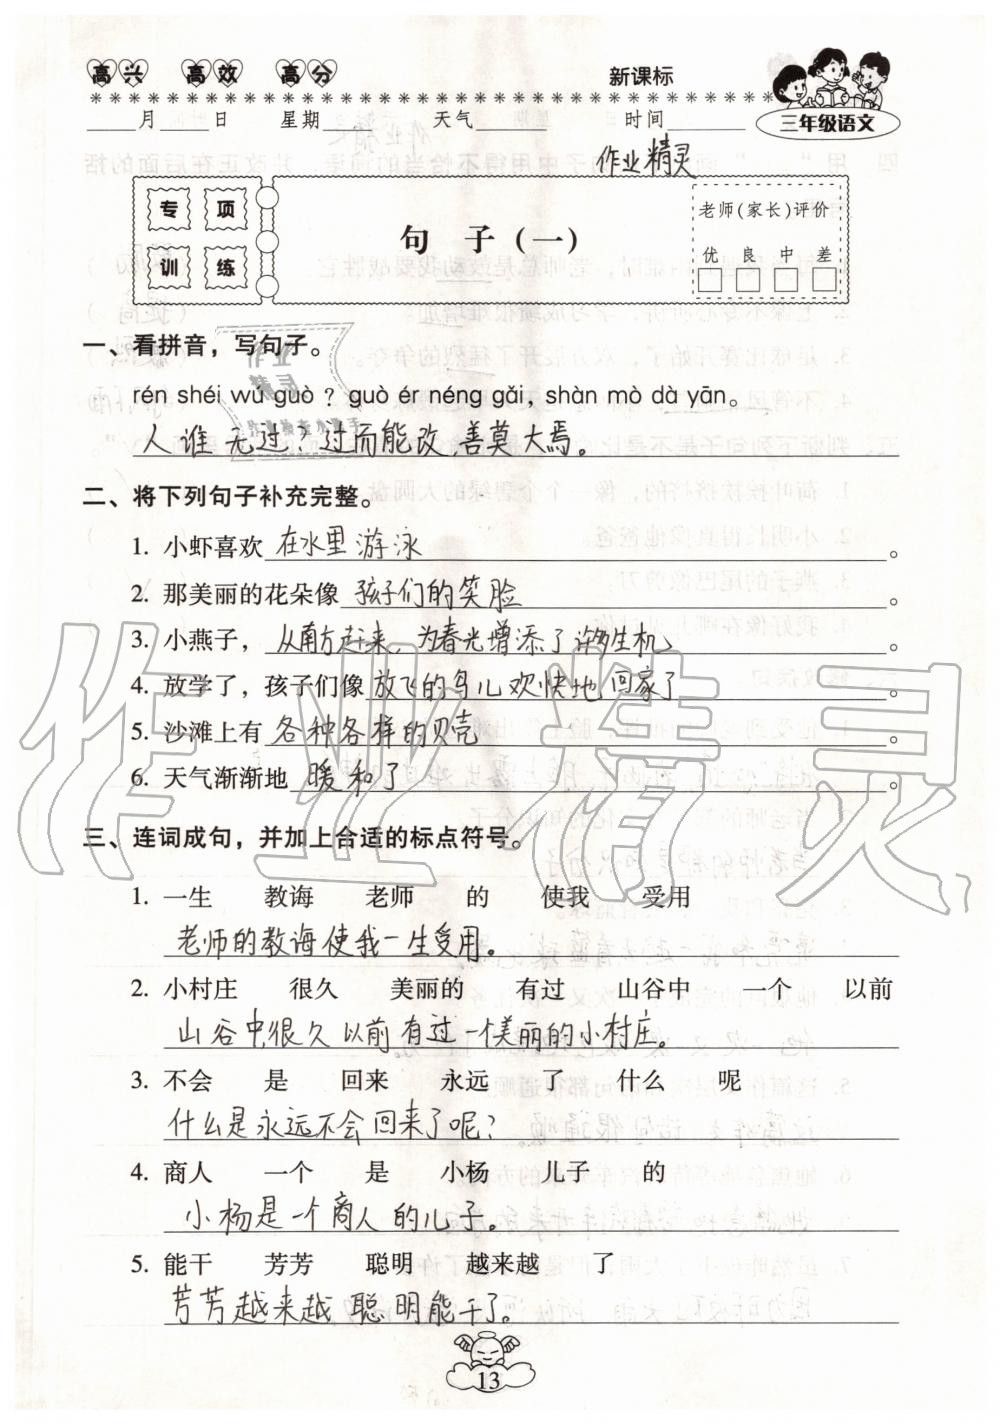 高兴 高效 高分 新课标
____月____日 星期____ 天气____ 时间____ 三年级语文
作业精灵
专项训练
句 子（一）
老师（家长）评价
优 良 中 差
一、看拼音，写句子。
rén shéi wú guò？guò ér néng gǎi，shàn mò dà yān。
人谁无过？过而能改 善莫大焉。
二、将下列句子补充完整。
1. 小虾喜欢 在水里游泳。
2. 那美丽的花朵像 孩子们的笑脸。
3. 小燕子， 从南方赶来，为春光增添了许多生机。
4. 放学了，孩子们像 放飞的鸟儿欢快地回家了。
5. 沙滩上有 各种各样的贝壳。
6. 天气渐渐地 暖和了。
三、连词成句，并加上合适的标点符号。
1. 一生 教诲 老师 的 使我 受用
老师的教诲使我一生受用。
2. 小村庄 很久 美丽的 有过 山谷中 一个 以前
山谷中很久以前有过一个美丽的小村庄。
3. 不会 是 回来 永远 了 什么 呢
什么是永远不会回来了呢？
4. 商人 一个 是 小杨 儿子 的
小杨是一个商人的儿子。
5. 能干 芳芳 聪明 越来越 了
芳芳越来越聪明能干了。
13
作业精灵